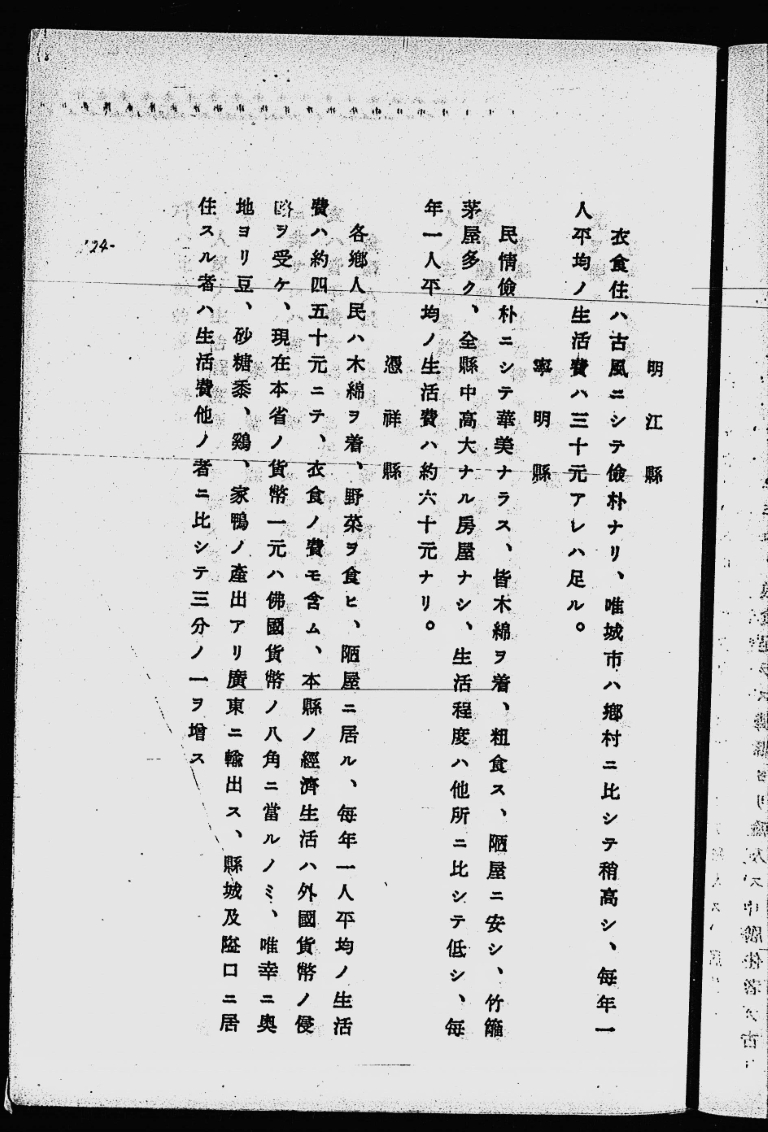 明江縣
衣食住ハ古風ニシテ儉朴ナリ、唯城市ハ鄉村ニ比シテ稍高シ、每年一
人平均ノ生活費ハ三十元アレハ足ル。
寧明縣
民情儉朴ニシテ華美ナラス、皆木綿ヲ着、粗食ス、陋屋ニ安シ、竹籬
茅屋多ク、全縣中高大ナル房屋ナシ、生活程度ハ他所ニ比シテ低シ、每
年一人平均ノ生活費ハ約六十元ナリ。
憑祥縣
各鄉人民ハ木綿ヲ着、野菜ヲ食ヒ、陋屋ニ居ル、每年一人平均ノ生活
費ハ約四五十元ニテ、衣食ノ費モ含ム、本縣ノ經濟生活ハ外國貨幣ノ侵
略ヲ受ケ、現在本省ノ貨幣一元ハ佛國貨幣ノ八角ニ當ルノミ、唯幸ニ奧
地ヨリ豆、砂糖黍、鷄、家鴨ノ產出アリ廣東ニ輸出ス、縣城及隘口ニ居
住スル者ハ生活費他ノ者ニ比シテ三分ノ一ヲ增ス
-24-